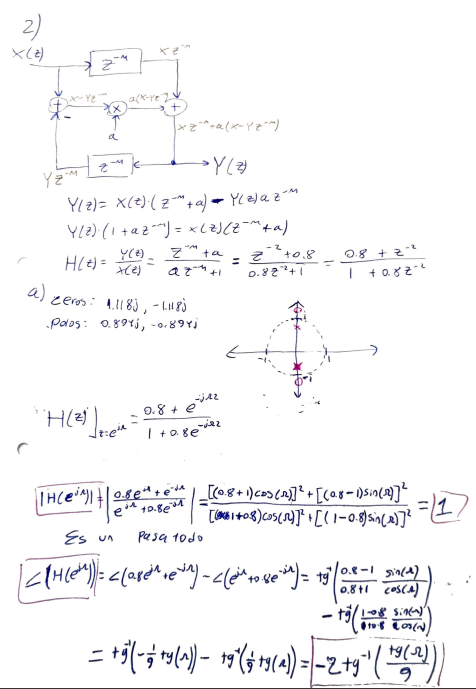 2)
X(z)
z^{-M}
X z^{-M}
+
X-Yz^{-M}
×
a(X-Yz^{-M})
+
-
a
Xz^{-M}+a(X-Yz^{-M})
Yz^{-M}
z^{-M}
Y(z)
Y(z)= X(z)·(z^{-M}+a) - Y(z)a z^{-M}
Y(z)·(1+az^{-M})= X(z)(z^{-M}+a)
H(z)= Y(z)/X(z) = (z^{-M}+a)/(a z^{-M}+1) = (z^{-2}+0.8)/(0.8z^{-2}+1) = (0.8+z^{-2})/(1+0.8z^{-2})
a) zeros: 1.118j, -1.118j
polos: 0.894j, -0.894j
j
-1 1
-j
H(z)]_{z=e^{jΩ}} = (0.8+e^{-jΩ2})/(1+0.8e^{-jΩ2})
|H(e^{jΩ})|= |(0.8e^{jΩ}+e^{-jΩ})/(e^{jΩ}+0.8e^{-jΩ})| = ([(0.8+1)cos(Ω)]²+[(0.8-1)sin(Ω)]²)/([(1+0.8)cos(Ω)]²+[(1-0.8)sin(Ω)]²) = 1
Es un pasa todo
∠(H(e^{jΩ}))=∠(0.8e^{jΩ}+e^{-jΩ})-∠(e^{jΩ}+0.8e^{-jΩ})= tg^{-1}((0.8-1)/(0.8+1) sin(Ω)/cos(Ω))
- tg^{-1}((1-0.8)/(1+0.8) sin(Ω)/cos(Ω))
= tg^{-1}(-1/9 tg(Ω)) - tg^{-1}(1/9 tg(Ω)) = -2 tg^{-1}(tg(Ω)/9)